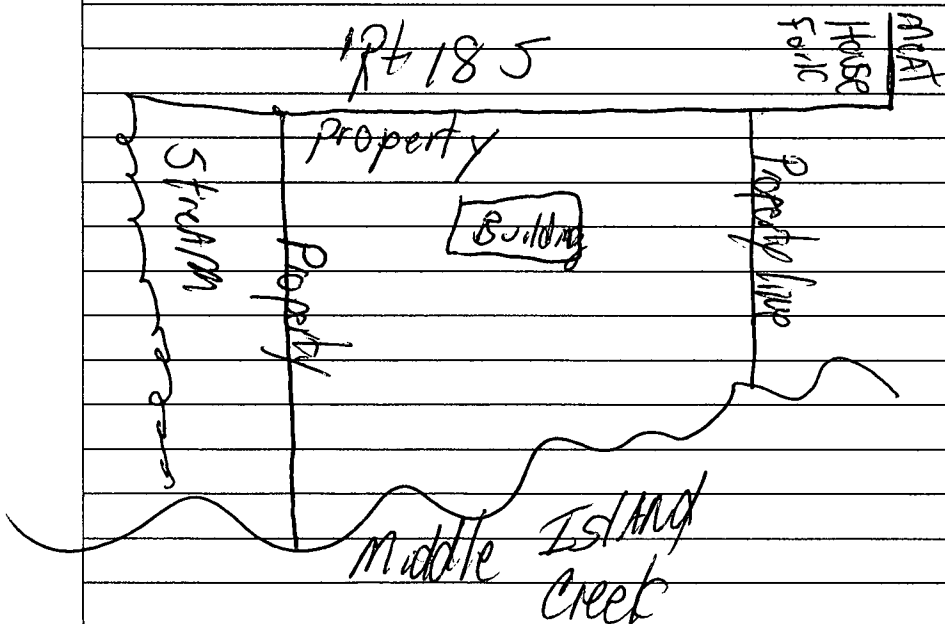 Rt 18 S
Meat
House
Fork
Property
Stream
Property
Building
Property line
Middle Island
Creek